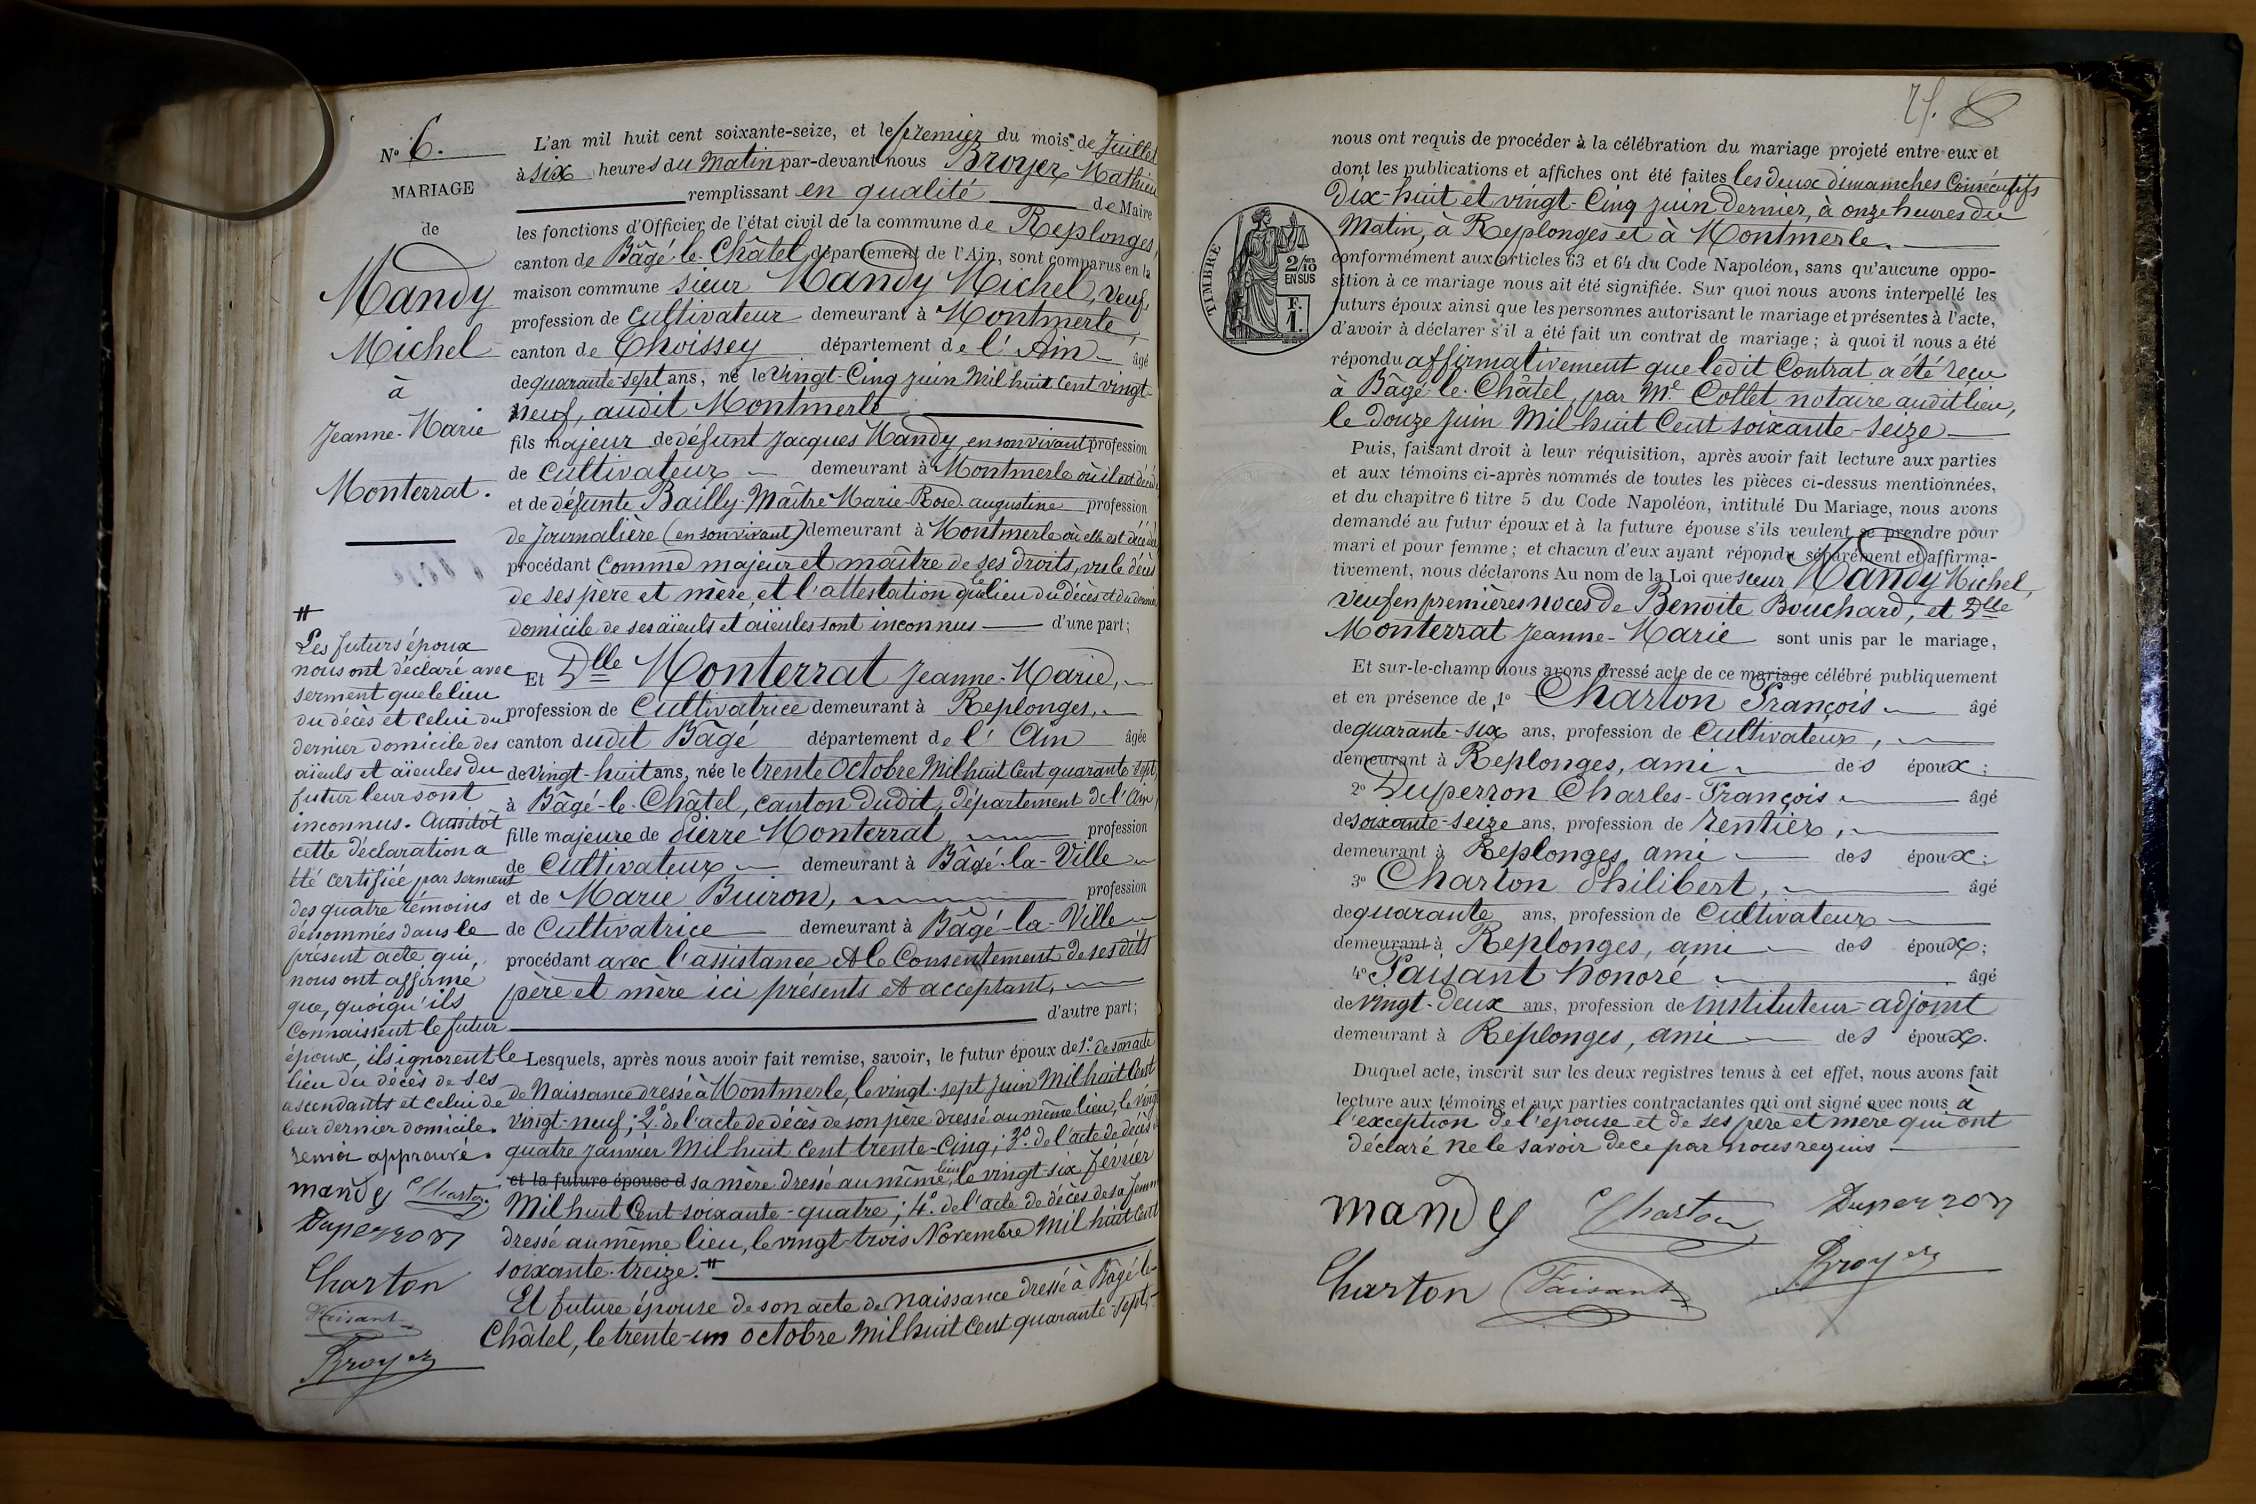 N° 6.
MARIAGE
de
Mandy
Michel
à
Jeanne-Marie
Monterrat.
L'an mil huit cent soixante-seize, et le premier du mois de Juillet
à six heures du Matin par-devant nous Broyer Mathieu
remplissant en qualité de Maire
les fonctions d'Officier de l'état civil de la commune de Replonges,
canton de Bâgé-le-Châtel, département de l'Ain, sont comparus en la
maison commune sieur Mandy Michel, veuf,
profession de cultivateur demeurant à Montmerle,
canton de Thoissey département de l'Ain âgé
de quarante-sept ans, né le vingt-Cinq juin Mil huit Cent vingt-
neuf, audit Montmerle
fils majeur de défunt Jacques Mandy en son vivant profession
de cultivateur demeurant à Montmerle où il est décédé
et de défunte Bailly-Maître Marie-Rose-augustine profession
de Journalière (en son vivant) demeurant à Montmerle où elle est décédée
procédant Comme majeur et maître de ses droits, vu le décès
de ses père et mère, et l'attestation que le lieu du décès et du dernier
domicile de ses aïeuls et aïeules sont inconnus d'une part;
Et Dlle Monterrat Jeanne-Marie,
profession de Cultivatrice demeurant à Replonges,
canton dudit Bâgé département de l'Ain âgée
de vingt-huit ans, née le trente Octobre Mil huit Cent quarante-sept,
à Bâgé-le-Châtel, canton dudit, département de l'Ain
fille majeure de Pierre Monterrat, profession
de Cultivateur demeurant à Bâgé-la-Ville
et de Marie Buiron, profession
de Cultivatrice demeurant à Bâgé-la-Ville
procédant avec l'assistance et le Consentement de ses dits
père et mère ici présents et acceptant,
d'autre part;
Lesquels, après nous avoir fait remise, savoir, le futur époux de 1° de son acte
de Naissance dressé à Montmerle, le vingt-sept juin Mil huit Cent
vingt-neuf; 2° de l'acte de décès de son père dressé au même lieu, le vingt
quatre janvier Mil huit cent trente-Cinq; 3° de l'acte de décès de
et la future épouse d sa mère dressé au même lieu, le vingt-six février
Mil huit Cent soixante-quatre; 4° de l'acte de décès de sa femme
dressé au même lieu, le vingt-trois Novembre Mil huit Cent
soixante-treize. #
Et future épouse de son acte de naissance dressé à Bâgé-le-
Châtel, le trente-un octobre Mil huit Cent quarante-sept,
#
Les futurs époux
nous ont déclaré avec
serment que le lieu
du décès et celui du
dernier domicile des
aïeuls et aïeules du
futur leur sont
inconnus. Aussitôt
cette déclaration a
été certifiée par serment
des quatre témoins
dénommés dans le
présent acte qui,
nous ont affirmé
que, quoiqu'ils
Connaissent le futur
époux, ils ignorent le
lieu du décès de ses
ascendants et celui de
leur dernier domicile.
renvoi approuvé.
mandy Charton
Duperron
Charton
Faisant
Broyer
71.
nous ont requis de procéder à la célébration du mariage projeté entre eux et
dont les publications et affiches ont été faites les deux dimanches Consécutifs
Dix-huit et vingt-Cinq juin Dernier, à onze heures du
Matin, à Replonges et à Montmerle.
conformément aux articles 63 et 64 du Code Napoléon, sans qu'aucune oppo-
sition à ce mariage nous ait été signifiée. Sur quoi nous avons interpellé les
futurs époux ainsi que les personnes autorisant le mariage et présentes à l'acte,
d'avoir à déclarer s'il a été fait un contrat de mariage; à quoi il nous a été
répondu affirmativement que ledit Contrat a été reçu
à Bâgé-le-Châtel, par Me Collet notaire audit lieu,
le Douze juin Mil huit Cent soixante-seize
TIMBRE
2/10
EN SUS
F.
1.
Puis, faisant droit à leur réquisition, après avoir fait lecture aux parties
et aux témoins ci-après nommés de toutes les pièces ci-dessus mentionnées,
et du chapitre 6 titre 5 du Code Napoléon, intitulé Du Mariage, nous avons
demandé au futur époux et à la future épouse s'ils veulent se prendre pour
mari et pour femme; et chacun d'eux ayant répondu séparément et affirma-
tivement, nous déclarons Au nom de la Loi que sieur Mandy Michel,
veuf en premières noces de Benoite Bouchard, et Dlle
Monterrat Jeanne-Marie sont unis par le mariage,
Et sur-le-champ nous avons dressé acte de ce mariage célébré publiquement
et en présence de, 1° Charton François âgé
de quarante-six ans, profession de Cultivateur,
demeurant à Replonges, ami des époux:
2° Duperron Charles-François âgé
de soixante-seize ans, profession de rentier,
demeurant à Replonges, ami des époux:
3° Charton Philibert, âgé
de quarante ans, profession de Cultivateur
demeurant à Replonges, ami des époux;
4° Faisant honoré âgé
de vingt-deux ans, profession de Instituteur-adjoint
demeurant à Replonges, ami des époux.
Duquel acte, inscrit sur les deux registres tenus à cet effet, nous avons fait
lecture aux témoins et aux parties contractantes qui ont signé avec nous à
l'exception de l'épouse et de ses père et mère qui ont
déclaré ne le savoir de ce par nous requis
mandy Charton Duperron
Charton Faisant Broyer